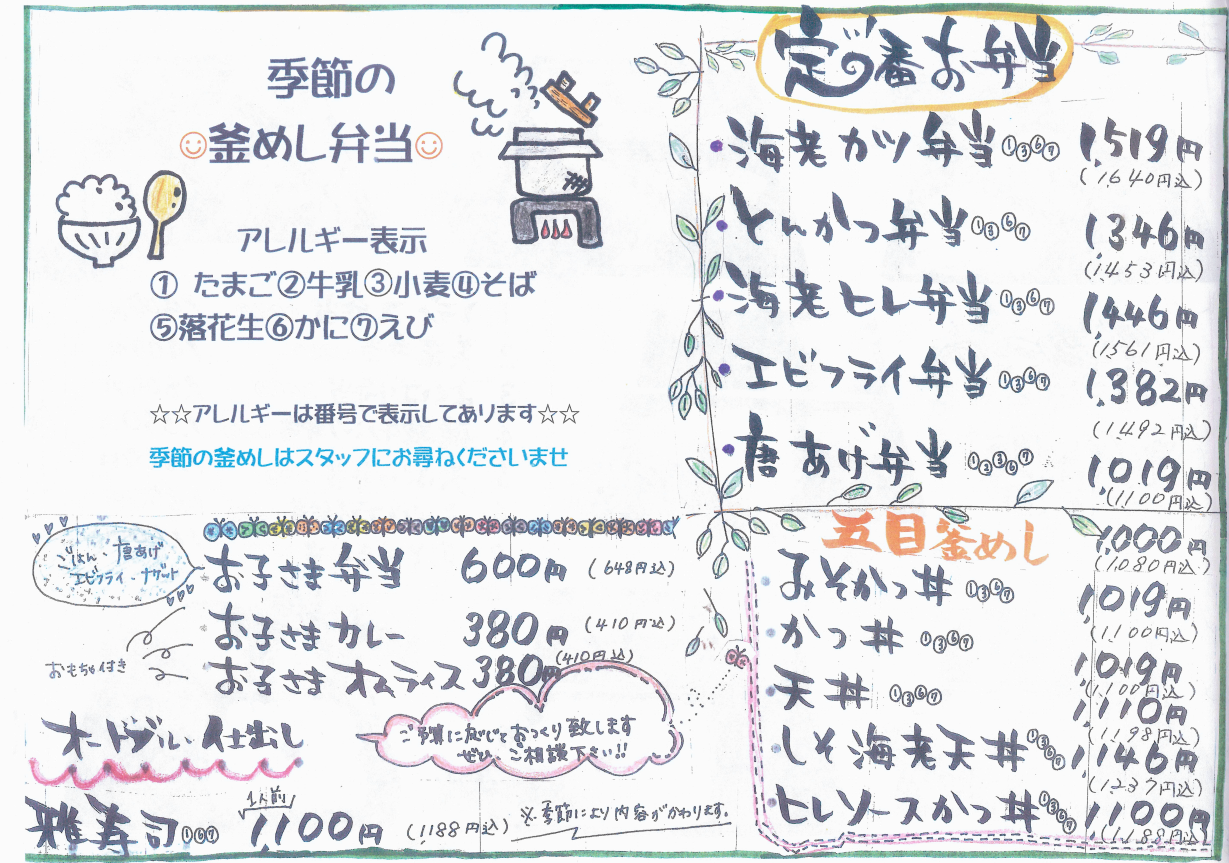 季節の
釜めし弁当
アレルギー表示
① たまご②牛乳③小麦④そば
⑤落花生⑥かに⑦えび
☆☆アレルギーは番号で表示してあります☆☆
季節の釜めしはスタッフにお尋ねくださいませ
定番お弁当
海老カツ弁当①③⑥⑦ 1,519円
(1,640円込)
とんかつ弁当①③⑥ 1,346円
(1,453円込)
海老ヒレ弁当①③⑥⑦ 1,446円
(1,561円込)
エビフライ弁当①③⑥⑦ 1,382円
(1,492円込)
唐あげ弁当 1,019円
(1,100円込)
ごはん・唐あげ
エビフライ・ナゲット
お子さま弁当 600円 (648円込)
お子さまカレー 380円 (410円込)
お子さまオムライス 380円 (410円込)
おもちゃ付き
オードブル・仕出し
ご予算に応じておつくり致します
ぜひ、ご相談下さい!!
雅寿司①⑥⑦ 1人前 1,100円 (1188円込)
※季節により内容がかわります。
五目釜めし 1,000円
(1,080円込)
みそかつ丼①③⑥⑦ 1,019円
(1,100円込)
かつ丼①③⑥⑦ 1,019円
(1,100円込)
天丼①③⑥⑦ 1,110円
(1,198円込)
しそ海老天丼①③⑥⑦ 1,146円
(1,237円込)
ヒレソースかつ丼①③⑥⑦ 1,100円
(1,188円込)